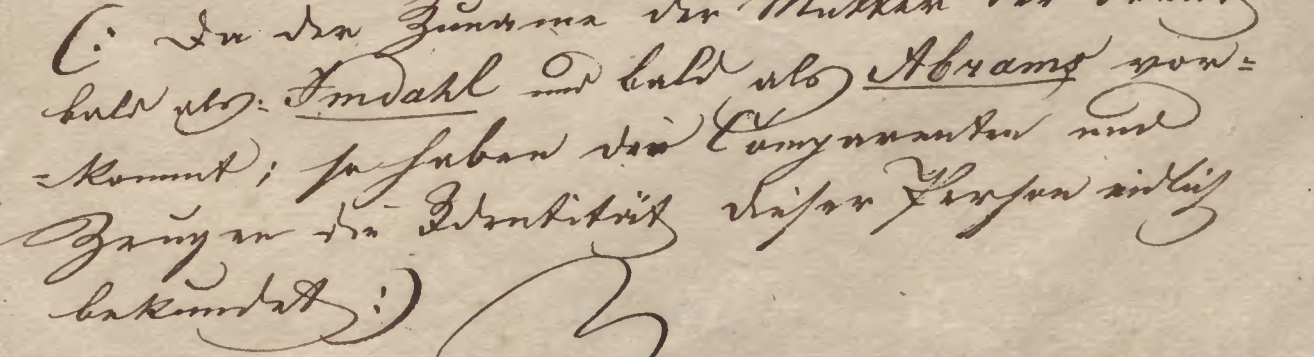 (: Da der Zuname der Mutter der Braut
bald als: Imdahl und bald als Abrams vor=
=kommt; so haben die Comparenten und
Zeugen die Identität dieser Person eidlich
bekundet :)